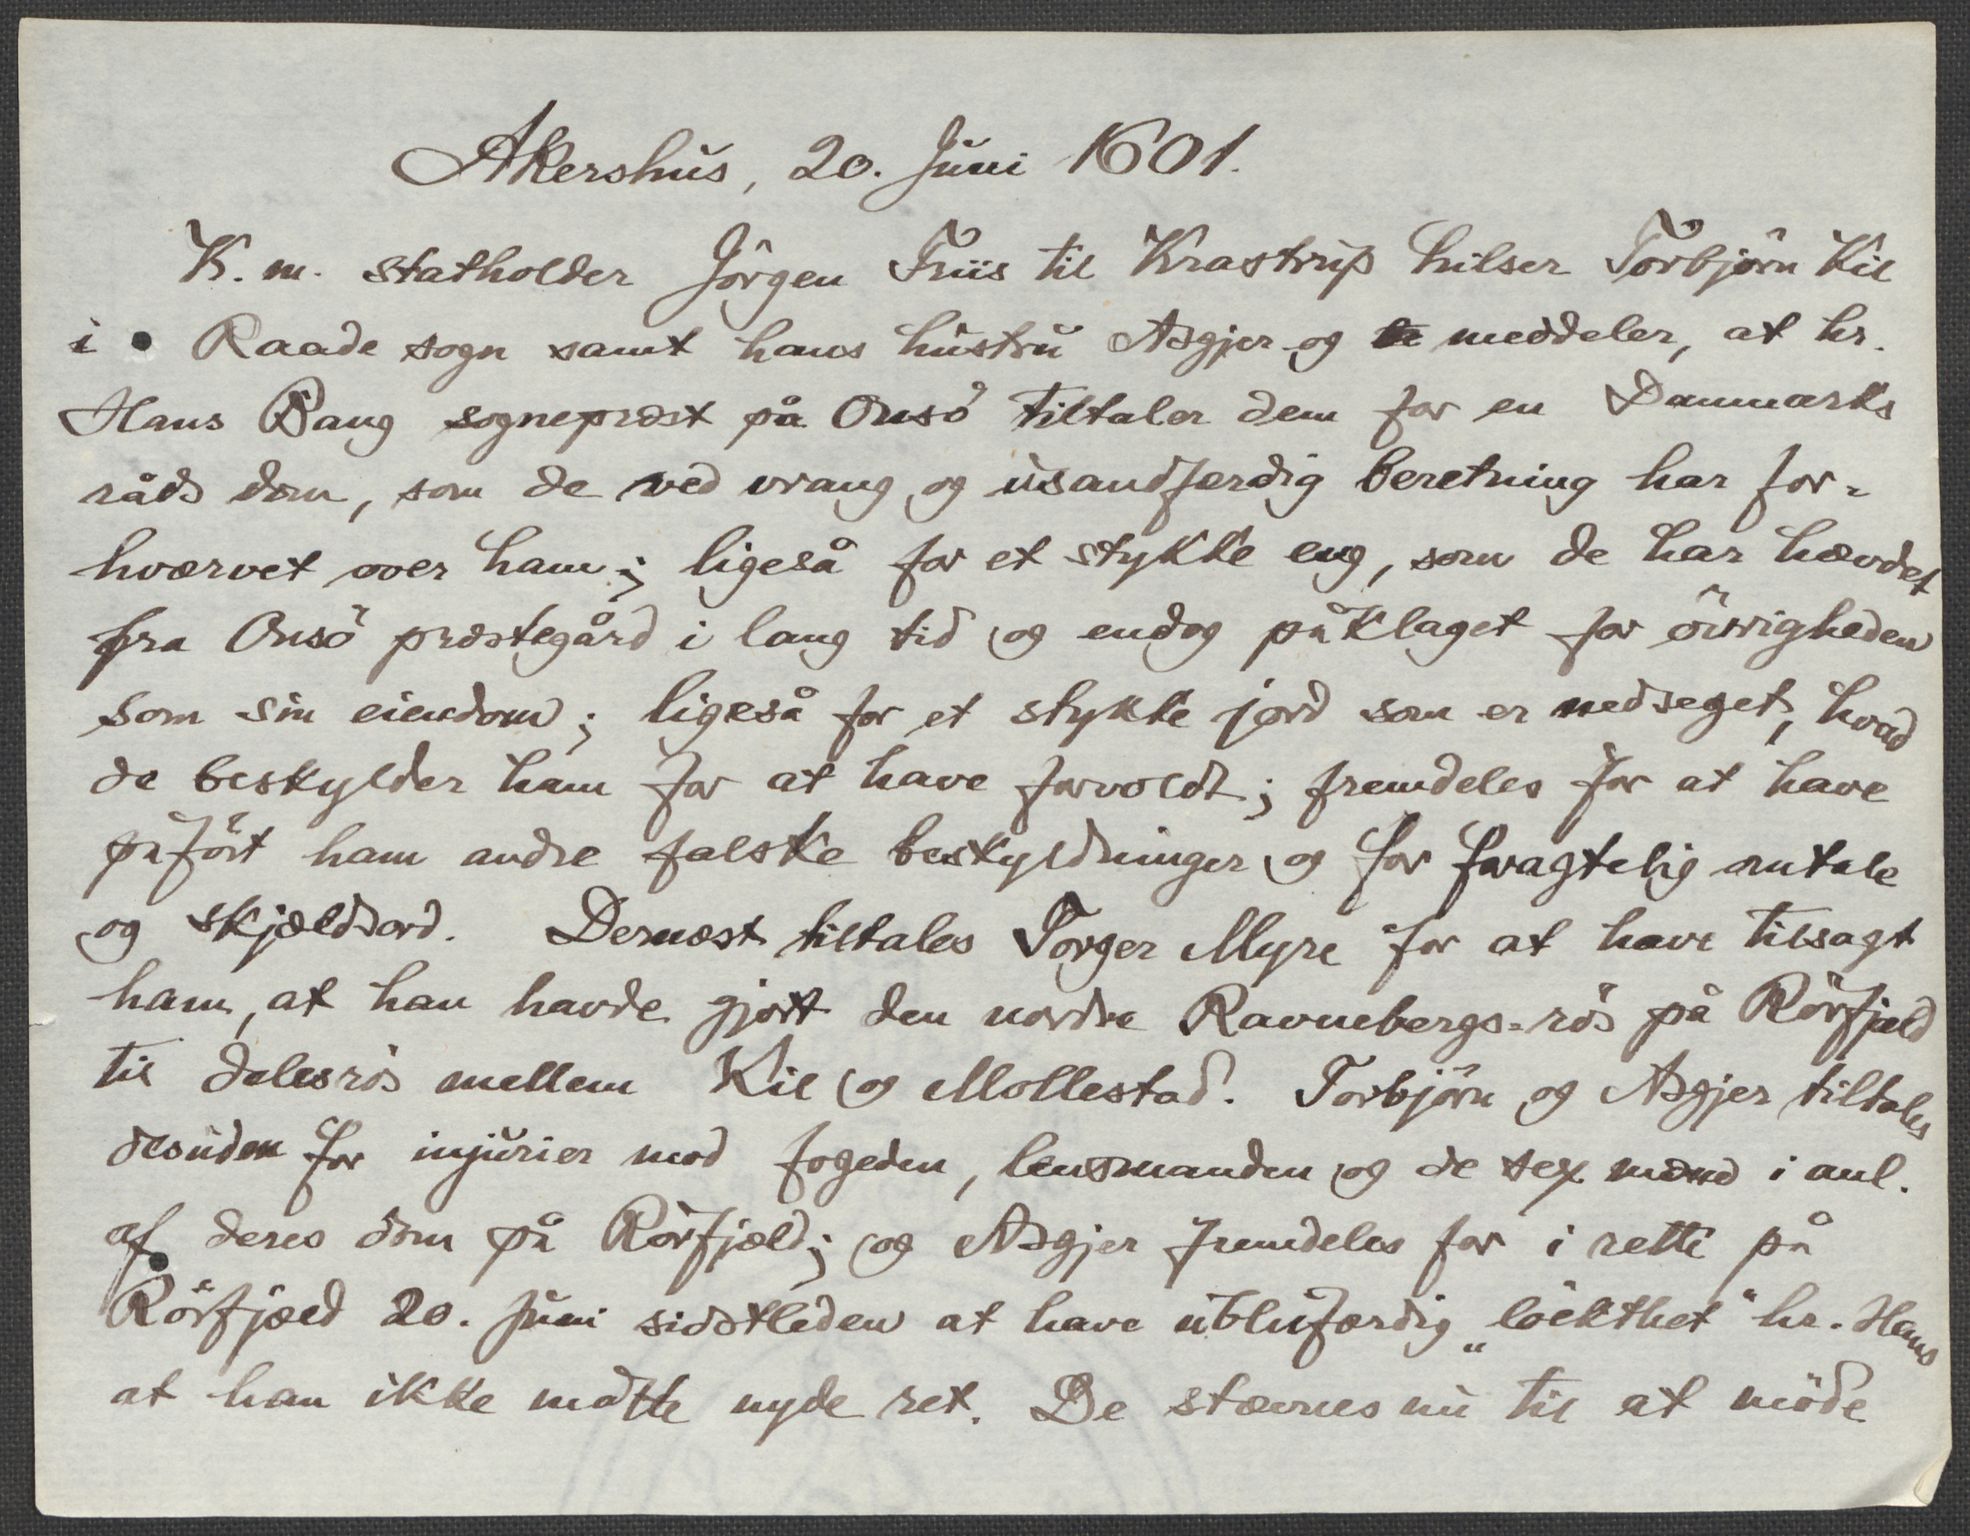 Akershus, 20. Juni 1601.
K. m. statholder Jörgen Friis til Krastrup hilser Torbjörn Kil
i Raade sogn samt hans hustru Asgjer og meddeler, at hr.
Hans Bang sogneprest på Onsö tiltaler dem for en Danmarks
råds dom, som de ved vrang og usandfærdig beretning har for-
hværvet over ham; ligeså for et stykke eng, som de har hævdet
fra Onsö præstegård i lang tid og endog påklaget for övrigheden
som sin eiendom; ligeså for et stykke jord som er nedseget, hvad
de beskylder ham for at have forvoldt; fremdeles for at have
påfört ham andre falske beskyldninger og for foragtelig omtale
og skjældsord. Dernæst tiltales Torger Myre for at have tilsagt
ham, at han havde gjort den nordre Ravnebergs-rös på Rörfjeld
til delesrös mellem Kil og Mollestad. Torbjörn og Asgjer tiltales
desuden for injurier mod fogeden, lensmanden og de sex mænd i anl.
af deres dom på Rörfjæld; og Asgjer fremdeles for i rette på
Rörfjæld 20. Juni sidstleden at have ublufærdig „löckthet" hr. Hans
at han ikke måtte nyde ret. De stævnes nu til at möde